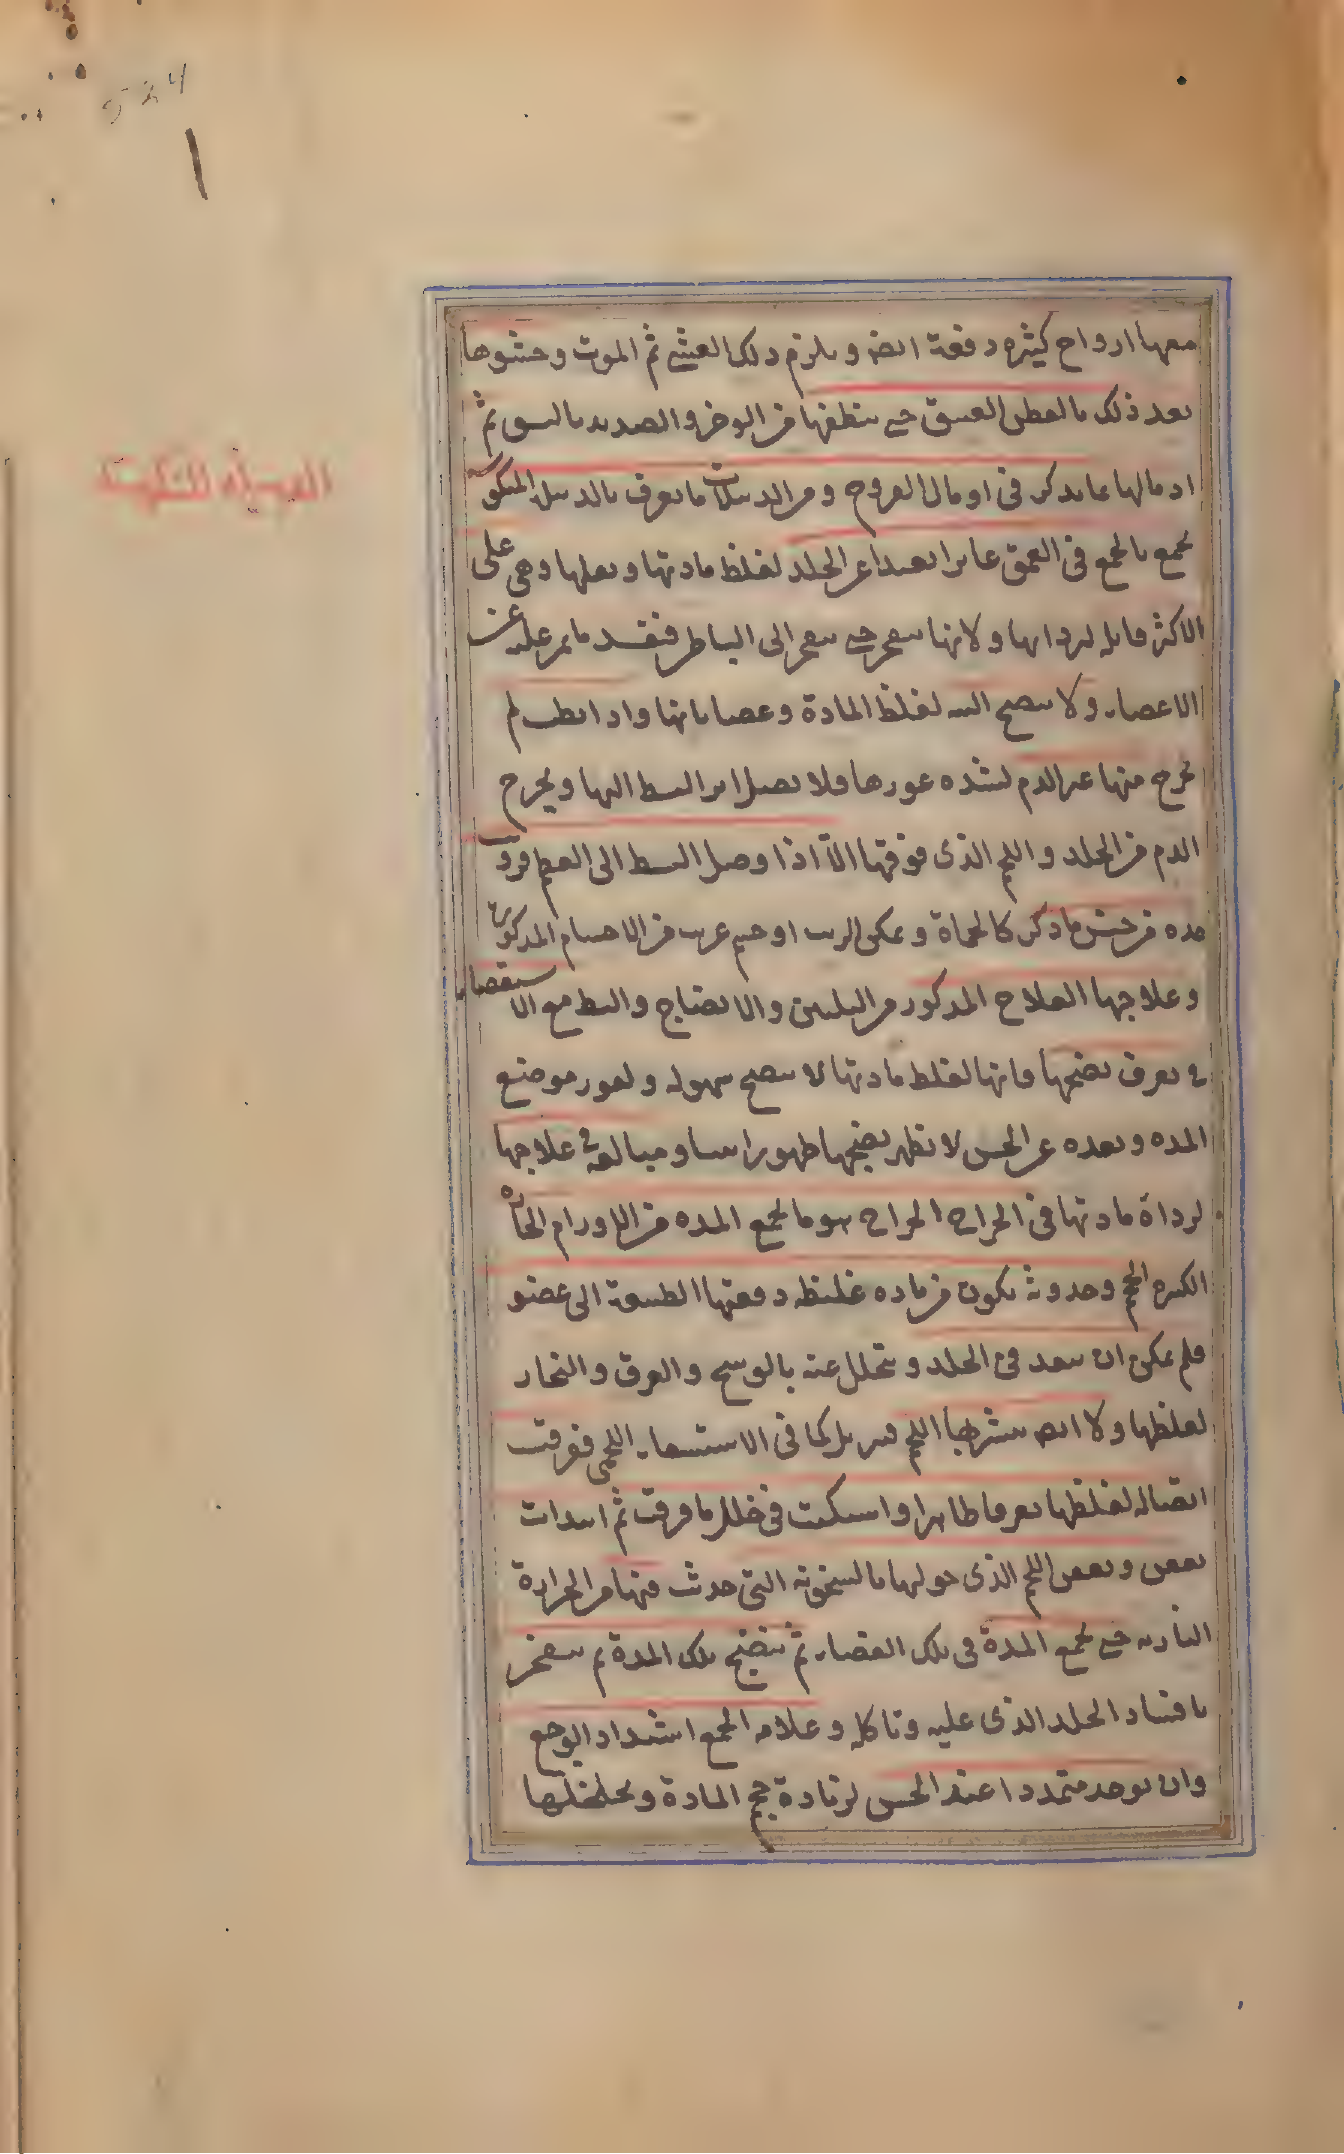 معها ارواح كثيره دفعة ايضه ويلزم ذلك الغشى ثم الموت وحشوها
بعد ذلك بالقطن العتيق حتى ينظفها من الوضر والصديد بالسوى ثم
ادمالها بما يذكر فى ادمال القروح ومن الدبيلات ما يعرف بالدبيله المنكوسة
تجمع بالجمع فى العمق غايرا بعيدا عن الجلد لغلظ مادتها وثقلها وهى على
الاكثر قاتله لرداءتها ولانها تنفجر حين تنفجر الى الباطن فتفسد ما يمر عليه من
الاعضاء ولا تنضج البته لغلظ المادة وعصيانها واذا بطت لم
يخرج منها غير الدم لشده غورها فلا يصل اثر البط اليها ويخرج
الدم من الجلد واللحم الذى فوقها الا اذا وصل البط الى العظم فرزت
مده من جنس ما ذكر كالحماة وعكر الزيت او جسم غريب من الاجسام المذكورة
وعلاجها العلاج المذكور من التليين والانضاج والبط مع الاستقصاء
فى تعرف نضجها فانها لغلظ مادتها لا تنضج بسهوله ولغور موضع
المده وبعده عن الحس لا يظهر نضجها ظهورا بينا ومبالغه فى علاجها
لرداة مادتها فى الخراج الخراج هو ما يجمع المده من الاورام الحاره
الكبيره الحجم وحدوثه يكون من ماده غليظه دفعتها الطبيعة الى عضو
فلم يمكن ان ينفذ فى الجلد ويتحلل عنه بالوسخ والعرق والبخار
لغلظها ولا ايضه يتشربها اللحم فيترهل كما فى الاستسقاء اللحمى ففرقت
اتصاله لغلظها تفرقا ظاهرا واستكنت فى خلل ما فرقت ثم ابتدات
بعفن وبعفن اللحم الذى حولها بالسخونه التى حدث فيها من الحرارة
الناريه حتى تجمع المدة فى تلك الفضاء ثم تنضج تلك المدة ثم ينفجر
بافساد الجلد الذى عليه وتاكله وعلامه الجمع اشتداد الوجع
وان يوجد متمددا عند الحس لزيادة حجم المادة وتخلخلها